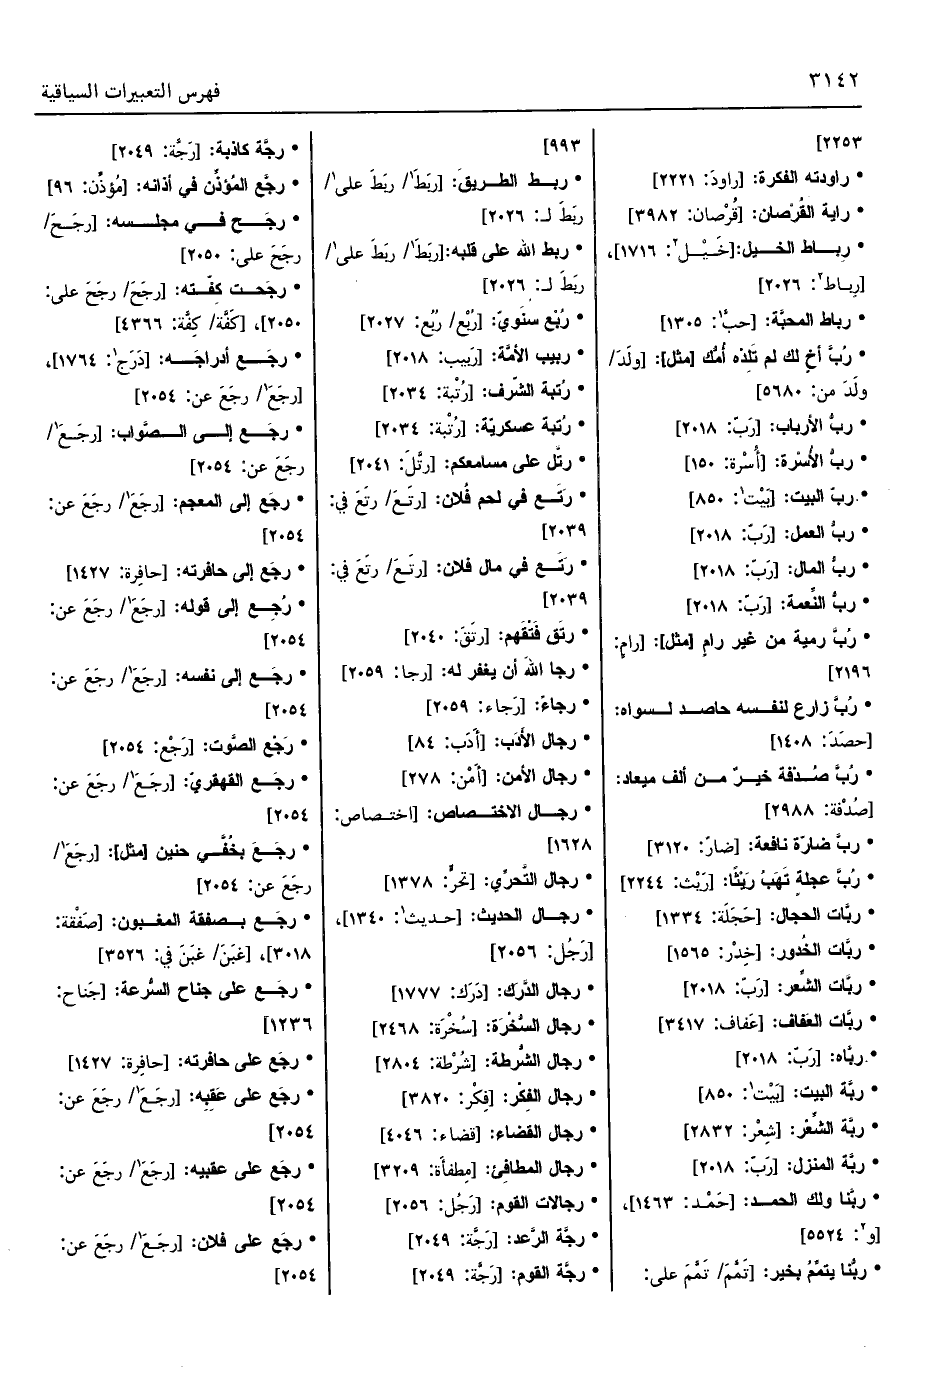 ٣١٤٢
فهرس التعبيرات السياقية
٢٢٥٣]
• راودته الفكرة: [راودَ: ٢٢٢١]
• راية القُرْصان: [قُرْصان: ٣٩٨٢]
• رباط الخيل: [خَيْل٢: ١٧١٦]،
[رِباط٢: ٢٠٢٦]
• رباط المحبَّة: [حبّ١: ١٣٠٥]
• رُبَّ أخٍ لك لم تَلِدْه أمُّك [مثل]: [ولَدَ/
ولَدَ من: ٥٦٨٠]
• ربُّ الأرباب: [رَبّ: ٢٠١٨]
• ربُّ الأسْرة: [أُسْرة: ١٥٠]
• ربّ البيت: [بَيْت١: ٨٥٠]
• ربُّ العمل: [رَبّ: ٢٠١٨]
• ربُّ المال: [رَبّ: ٢٠١٨]
• ربُّ النِّعمة: [رَبّ: ٢٠١٨]
• رُبَّ رمية من غير رامٍ [مثل]: [رامٍ:
٢١٩٦]
• رُبَّ زارع لنفسه حاصد لسواه:
[حصَدَ: ١٤٠٨]
• رُبَّ صُدْفة خيرٌ من ألف ميعاد:
[صُدْفة: ٢٩٨٨]
• ربَّ ضارّة نافعة: [ضارّ: ٣١٢٠]
• رُبَّ عجلةٍ تَهَبُ رَيْثًا: [رَيْث: ٢٢٤٤]
• ربَّات الحجال: [حَجَلَة: ١٣٣٤]
• ربَّات الخُدور: [خِدْر: ١٥٦٥]
• ربَّات الشِّعر: [رَبّ: ٢٠١٨]
• ربَّات العَفاف: [عَفاف: ٣٤١٧]
• ربَّاه: [رَبّ: ٢٠١٨]
• ربَّة البيت: [بَيْت١: ٨٥٠]
• ربَّة الشِّعْر: [شِعْر: ٢٨٣٢]
• ربَّة المنزل: [رَبّ: ٢٠١٨]
• ربَّنا ولك الحمد: [حَمْد: ١٤٦٣]،
[و٢: ٥٥٢٤]
• ربُّنا يتمِّمُ بخير: [تَمَّمَ/ تَمَّمَ على:
٩٩٣]
• ربط الطريقَ: [ربَطَ١/ ربَطَ على١/
ربَطَ لـ: ٢٠٢٦]
• ربط الله على قلبه: [ربَطَ١/ ربَطَ على١/
ربَطَ لـ: ٢٠٢٦]
• رُبْع سنَويّ: [رُبْع/ رُبُع: ٢٠٢٧]
• ربيب الأمَّة: [رَبيب: ٢٠١٨]
• رُتبة الشَّرف: [رُتْبة: ٢٠٣٤]
• رُتْبة عسكريّة: [رُتْبة: ٢٠٣٤]
• رتّل على مسامعكم: [رتَّلَ: ٢٠٤١]
• رتَع في لحم فُلان: [رتَعَ/ رتَعَ في:
٢٠٣٩]
• رتَع في مال فلان: [رتَعَ/ رتَعَ في:
٢٠٣٩]
• رتَق فَتْقَهم: [رتَقَ: ٢٠٤٠]
• رجا اللهَ أن يغفر له: [رجا: ٢٠٥٩]
• رجاءً: [رَجاء: ٢٠٥٩]
• رجال الأدَب: [أدَب: ٨٤]
• رجال الأمن: [أَمْن: ٢٧٨]
• رجال الاختصاص: [اختصاص:
١٦٢٨]
• رجال التَّحرِّي: [تحرٍّ: ١٣٧٨]
• رجال الحديث: [حديث١: ١٣٤٠]،
[رَجُل: ٢٠٥٦]
• رجال الدَّرك: [دَرَك: ١٧٧٧]
• رجال السُّخْرَة: [سُخْرَة: ٢٤٦٨]
• رجال الشُّرطة: [شُرْطة: ٢٨٠٤]
• رجال الفِكْر: [فِكْر: ٣٨٢٠]
• رجال القضاء: [قضاء: ٤٠٤٦]
• رجال المطافئ: [مِطفأة: ٣٢٠٩]
• رجالات القوم: [رَجُل: ٢٠٥٦]
• رجَّة الرَّعد: [رَجَّة: ٢٠٤٩]
• رجَّة القوم: [رَجَّة: ٢٠٤٩]
• رجَّة كاذبة: [رَجَّة: ٢٠٤٩]
• رجَّع المُؤذِّن في أذانه: [مُؤذِّن: ٩٦]
• رجَح في مجلسه: [رجَحَ/
رجَحَ على: ٢٠٥٠]
• رجَحت كفّته: [رجَحَ/ رجَحَ على:
٢٠٥٠]، [كَفَّة/ كِفَّة: ٤٣٦٦]
• رجَع أدراجَه: [دَرَج١: ١٧٦٤]،
[رجَعَ١/ رجَعَ عن: ٢٠٥٤]
• رجَع إلى الصَّواب: [رجَعَ١/
رجَعَ عن: ٢٠٥٤]
• رجَع إلى المعجم: [رجَعَ١/ رجَعَ عن:
٢٠٥٤]
• رجَع إلى حافرته: [حافِرة: ١٤٢٧]
• رُجِع إلى قوله: [رجَعَ١/ رجَعَ عن:
٢٠٥٤]
• رجَع إلى نفسه: [رجَعَ١/ رجَعَ عن:
٢٠٥٤]
• رَجْع الصَّوت: [رَجْع: ٢٠٥٤]
• رجَع القهقريَ: [رجَعَ١/ رجَعَ عن:
٢٠٥٤]
• رجَع بخُفَّي حنين [مثل]: [رجَعَ١/
رجَعَ عن: ٢٠٥٤]
• رجَع بصفقة المغبون: [صَفْقة:
٣٠١٨]، [غبَنَ/ غبَنَ في: ٣٥٢٦]
• رجَع على جناح السُّرعة: [جَناح:
١٢٣٦]
• رجَع على حافرته: [حافِرة: ١٤٢٧]
• رجَع على عَقِبِه: [رجَعَ١/ رجَعَ عن:
٢٠٥٤]
• رجَع على عقبيه: [رجَعَ١/ رجَعَ عن:
٢٠٥٤]
• رجَع على فلان: [رجَعَ١/ رجَعَ عن:
٢٠٥٤]